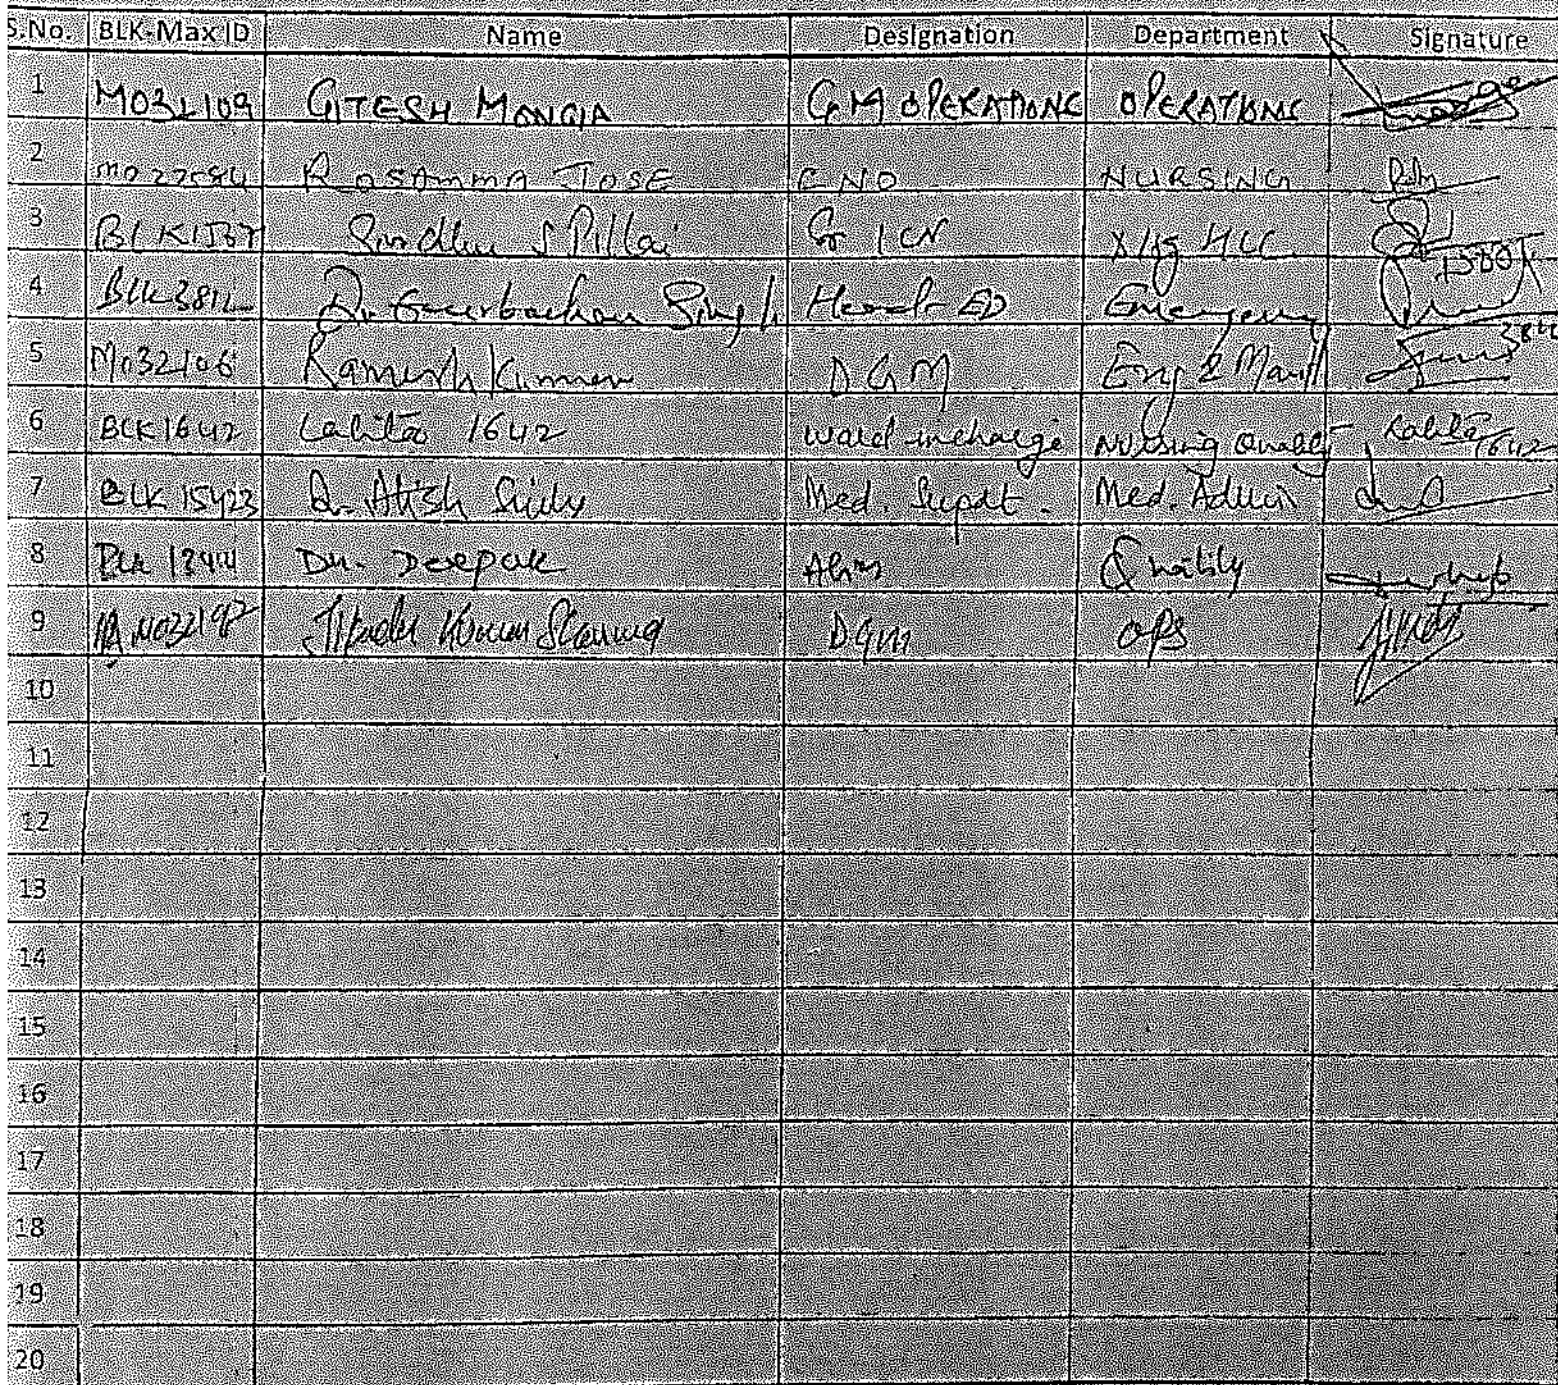 S.No. BLK-Max ID Name Designation Department Signature
1 M032109 GITESH MONGIA GM OPERATIONS OPERATIONS
2 M027584 Rosamma JOSE CNO NURSING
3 BLK1387 Sindhu S Pillai Sr ICN
4 BLK3812 Dr Gurbachan Singh Head ED Emergency 3812
5 M032106 Ramesh Kumar DGM Eng & Maint
6 BLK1642 Lalita 1642 ward incharge Nursing Quality Lalita 1642
7 BLK 15423 Dr. Atish Med. Supdt. Med. Admin
8 Dr. Deepak Quality
9 M032192 Kumar Sharma DGM OPS
10
11
12
13
14
15
16
17
18
19
20